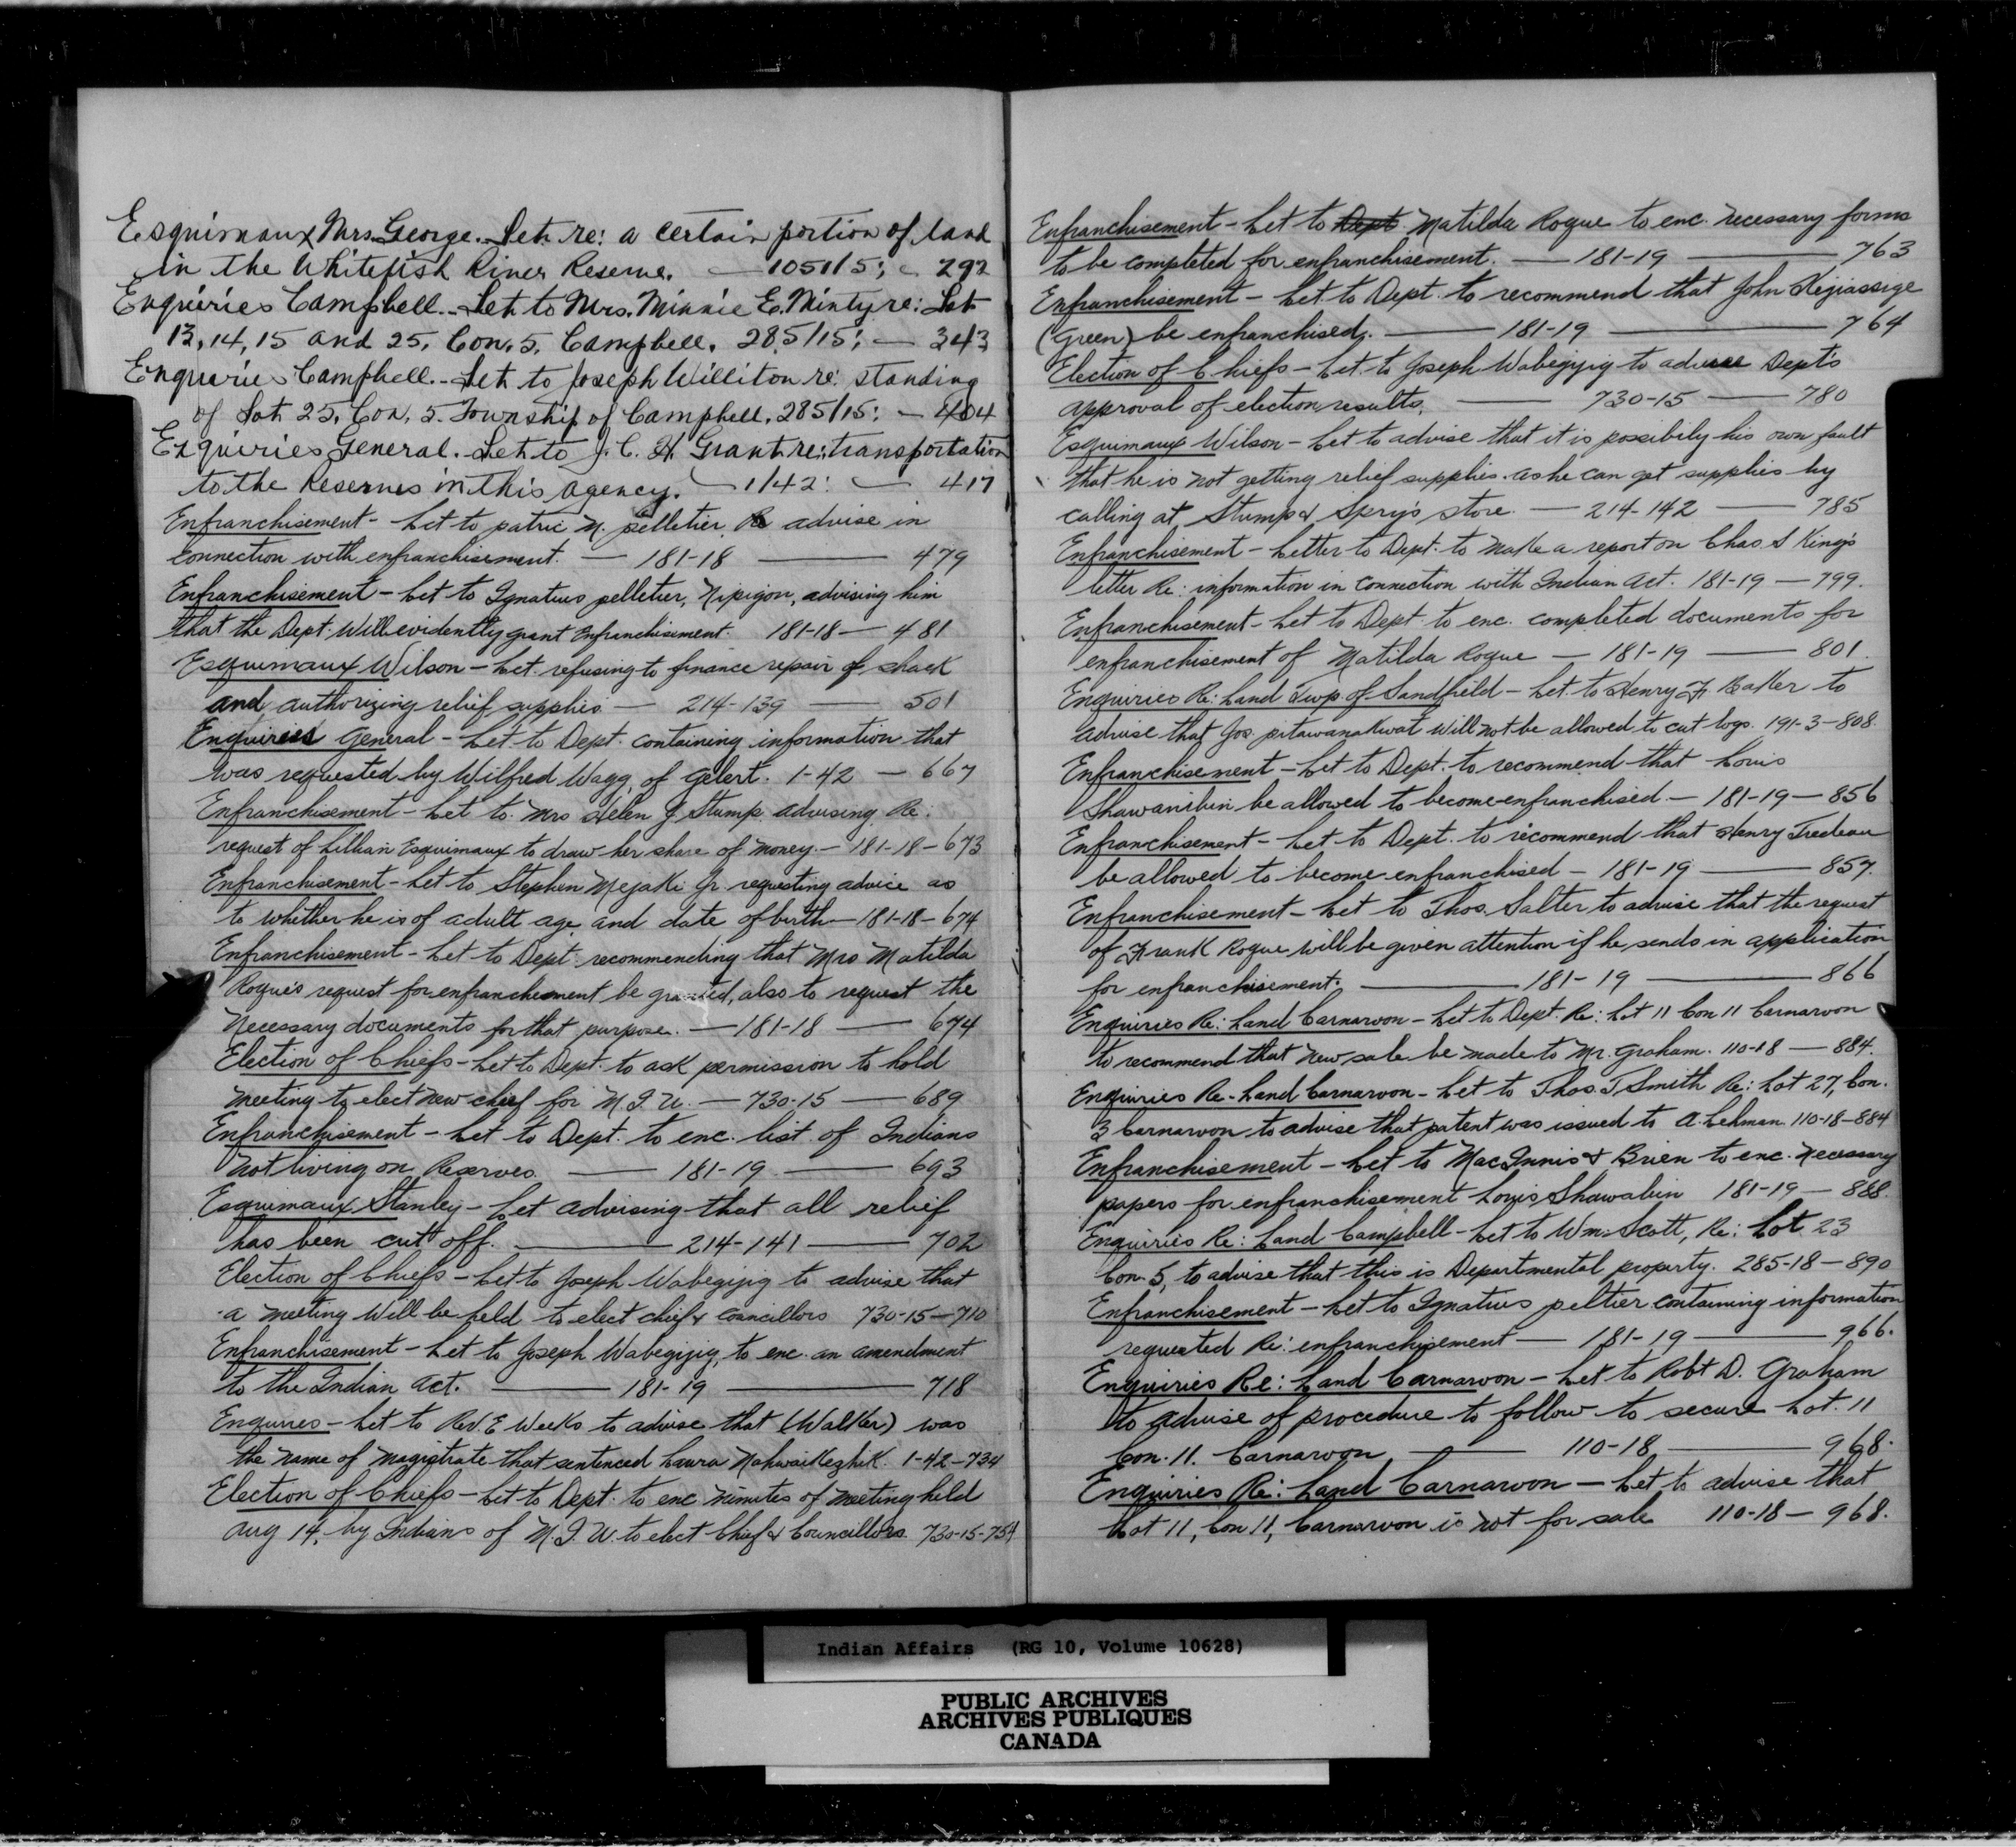 Esquimaux Mrs. George. Let. re: a certain portion of land
in the Whitefish River Reserve. — 1051/5; — 292
Enquieries Campbell. - Let. to Mrs. Minnie E. Mintyre: Lot
13, 14, 15 and 25, Con. 5, Campbell. 285/15; — 343
Enqueries Campbell. - Let. to Joseph Williton re: standing
of Lot 25, Con. 5. Township of Campbell. 285/15: — 404
Enquieries General. Let. to J. C. H. Grant re: transportation
to the Reserves in this agency. — 1/42: — 417
Enfranchisement - Let to patric M. pelletier Re advise in
connection with enfranchisement. — 181-18 — 479
Enfranchisement - Let to Ignatius pelletier, Nipigon, advising him
that the Dept. Will evidently grant Enfranchisement. 181-18 — 481
Esquimaux Wilson - Let. refusing to finance repair of shack
and authorizing relief supplies — 214-139 — 501
Enquiries General - Let to Dept. containing information that
was requested by Wilfred Wagg, of Gelert. 1-42 — 667
Enfranchisement - Let to Mrs Helen J Stump advising Re:
request of Lillian Esquimaux to draw her share of money. - 181-18 - 673
Enfranchisement - Let to Stephen Mejaki Jr requesting advice as
to whether he is of adult age and date of birth — 181-18 - 674
Enfranchisement - Let to Dept. recommending that Mrs Matilda
Rogue's request for enfranchement be granted, also to request the
Necessary documents for that purpose. — 181-18 — 674
Election of Chiefs - Let to Dept. to ask permission to hold
meeting to elect new chief for M. I. U. — 730-15 — 689
Enfranchisement - Let to Dept. to enc. list of Indians
not living on Reserves — 181-19 — 693
Esquimaux Stanley - Let advising that all relief
has been cut off. — 214-141 — 702
Election of Chiefs - Let to Joseph Wabegijig to advise that
a meeting will be held to elect chief & councillors 730-15 — 710
Enfranchisement - Let to Joseph Wabegijig, to enc. an amendment
to the Indian Act. — 181-19 — 718
Enquires - Let to Rev. E Weeks to advise that (Walker) was
the name of Magistrate that sentenced Laura Nahwaikezhik. 1-42 - 734
Election of Chiefs - Let to Dept. to enc minutes of meeting held
Aug 14, by Indians of M. I. U. to elect Chief & Councillors. 730-15-754
Enfranchisement - Let to Dept. Matilda Rogue to enc. necessary forms
to be completed for enfranchisement. — 181-19 — 763
Enfranchisement - Let. to Dept. to recommend that John Kejiassige
(Green) be enfranchised. — 181-19 — 764
Election of Chiefs - Let. to Joseph Wabegijig to advise Dept's
approval of election results. — 730-15 — 780
Esquimaux Wilson - Let to advise that it is possibily his own fault
that he is not getting relief supplies. as he can get supplies by
calling at Stump & Sprys store. — 214-142 — 785
Enfranchisement - Letter to Dept. to make a report on Chas. S King's
letter Re: information in connection with Indian Act. 181-19 — 799.
Enfranchisement - Let to Dept. to enc. completed documents for
enfranchisement of Matilda Rogue — 181-19 — 801.
Enquiries Re: Land Twp. of Sandfield - Let. to Henry F. Baker to
advise that Jos. pitawanakwat will not be allowed to cut logs. 191-3-808.
Enfranchisement - Let to Dept. to recommend that Louis
Shawanibin be allowed to become enfranchised. — 181-19 — 856
Enfranchisement - Let to Dept. to recommend that Henry Tredeau
be allowed to become enfranchised - 181-19 — 857.
Enfranchisement - Let to Thos. Salter to advise that the request
of Frank Rogue will be given attention if he sends in application
for enfranchisement. — 181-19 — 866
Enquiries Re: Land Carnarvon - Let to Dept. Re: Lot 11 Con 11 Carnarvon
to recommend that new sale be made to Mr. Graham. 110-18 — 884.
Enquiries Re - Land Carnarvon - Let to Thos. T Smith Re: Lot 27, Con.
3 Carnarvon to advise that patent was issued to A. Lehman. 110-18-884
Enfranchisement - Let to MacInnis & Brien to enc. necessary
papers for enfranchisement Louis Shawabin 181-19 — 888.
Enquiries Re: Land Campbell - Let to Wm. Scott, Re: Lot 23
Con. 5, to advise that this is Departmental property. 285-18 - 890
Enfranchisement - Let to Ignatius peltier containing information
requested Re: enfranchisement — 181-19 — 966.
Enquiries Re: Land Carnarvon - Let to Robt D. Graham
to advise of procedure to follow to secure Lot. 11
Con. 11. Carnarvon — 110-18 — 968.
Enquiries Re: Land Carnarvon - Let to advise that
Lot 11, Con 11, Carnarvon is not for sale 110-18 — 968.
Indian Affairs (RG 10, Volume 10628)
PUBLIC ARCHIVES
ARCHIVES PUBLIQUES
CANADA